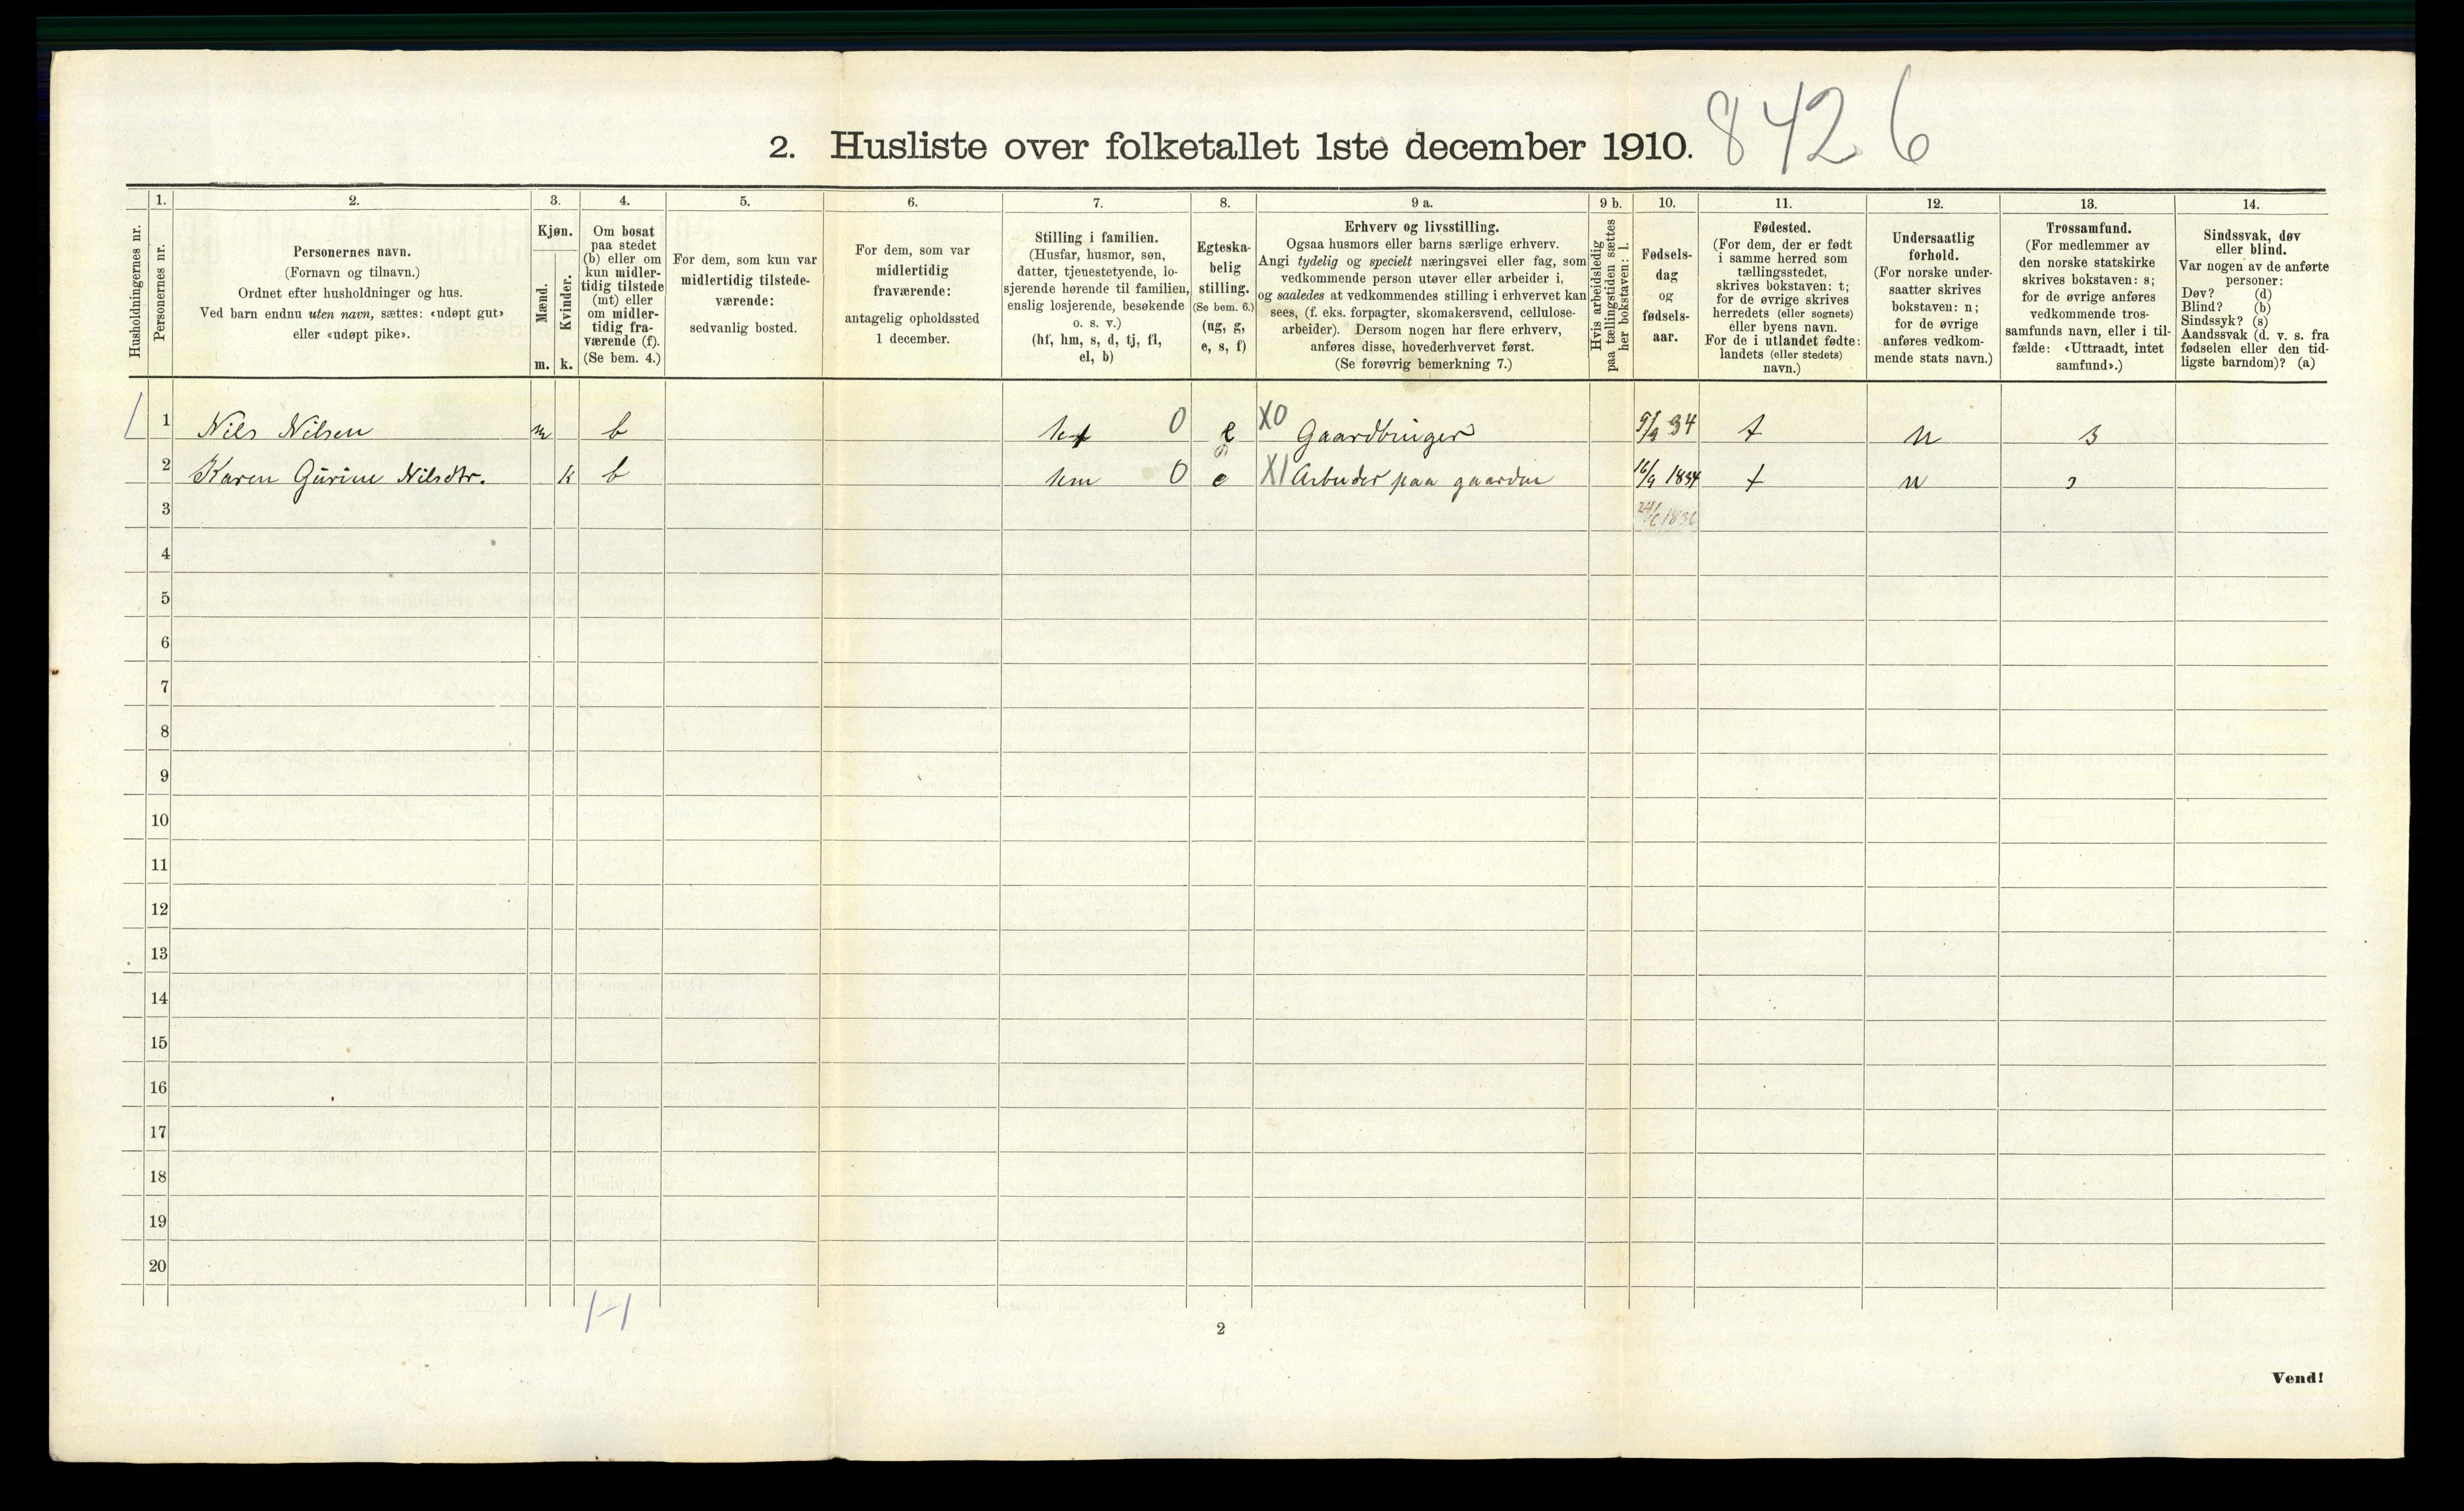 2. Husliste over folketallet 1ste december 1910. 8426
Husholdningernes nr.
1.
Personernes nr.
2.
Personernes navn.
(Fornavn og tilnavn.)
Ordnet efter husholdninger og hus.
Ved barn endnu uten navn, sættes: «udøpt gut»
eller «udøpt pike».
3.
Kjøn.
Mænd.
m.
Kvinder.
k.
4.
Om bosat
paa stedet
(b) eller om
kun midler-
tidig tilstede
(mt) eller
om midler-
tidig fra-
værende (f).
(Se bem. 4.)
5.
For dem, som kun var
midlertidig tilstede-
værende:
sedvanlig bosted.
6.
For dem, som var
midlertidig
fraværende:
antagelig opholdssted
1 december.
7.
Stilling i familien.
(Husfar, husmor, søn,
datter, tjenestetyende, lo-
sjerende hørende til familien,
enslig losjerende, besøkende
o. s. v.)
(hf, hm, s, d, tj, fl,
el, b)
8.
Egteska-
belig
stilling.
(Se bem. 6.)
(ug, g,
e, s, f)
9 a.
Erhverv og livsstilling.
Ogsaa husmors eller barns særlige erhverv.
Angi tydelig og specielt næringsvei eller fag, som
vedkommende person utøver eller arbeider i,
og saaledes at vedkommendes stilling i erhvervet kan
sees, (f. eks. forpagter, skomakersvend, cellulose-
arbeider). Dersom nogen har flere erhverv,
anføres disse, hovederhvervet først.
(Se forøvrig bemerkning 7.)
9 b.
Hvis arbeidsledig
paa tællingstiden sættes
her bokstaven: l.
10.
Fødsels-
dag
og
fødsels-
aar.
11.
Fødested.
(For dem, der er født
i samme herred som
tællingsstedet,
skrives bokstaven: t;
for de øvrige skrives
herredets (eller sognets)
eller byens navn.
For de i utlandet fødte:
landets (eller stedets)
navn.)
12.
Undersaatlig
forhold.
(For norske under-
saatter skrives
bokstaven: n;
for de øvrige
anføres vedkom-
mende stats navn.)
13.
Trossamfund.
(For medlemmer av
den norske statskirke
skrives bokstaven: s;
for de øvrige anføres
vedkommende tros-
samfunds navn, eller i til-
fælde: «Uttraadt, intet
samfund».)
14.
Sindssvak, døv
eller blind.
Var nogen av de anførte
personer:
Døv? (d)
Blind? (b)
Sindssyk? (s)
Aandssvak (d. v. s. fra
fødselen eller den tid-
ligste barndom)? (a)
1 1 Nils Nilsen m b hf 0 X0 Gaardbruger 9/9 34 t n s
2 Karen Gurine Nilsdtr. k b hm 0 e X1 Arbeider paa gaarden 16/9 1834 t n s
3
4
5
6
7
8
9
10
11
12
13
14
15
16
17
18
19
20
1-1
2
Vend!